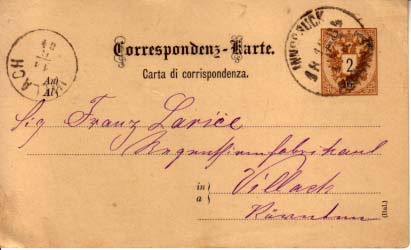 Correspondenz-Karte.
Carta di corrispondenza.
INNSBRUCK
2
VILLACH
An
Al
Sig Franz Larice
Regenschirmfabrikant
in
a
Villach
Kärnten
(Ital.)